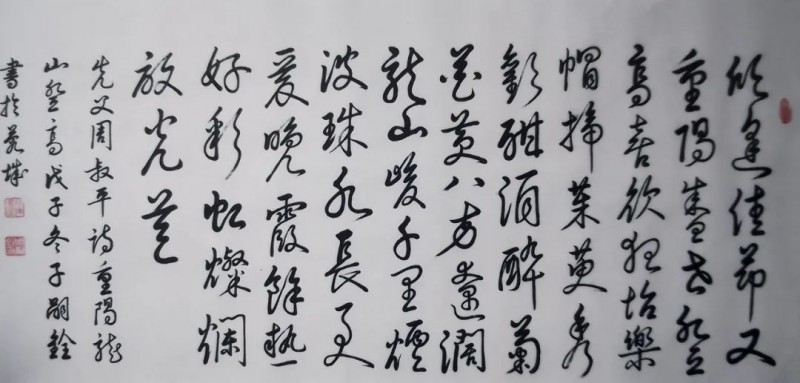 欣逢佳節又
重陽耆老登
高喜欲狂怡樂
帽插茱萸秀
歡酣酒醉菊
花黄八方遼濶
龍山峻千里煙
波珠水長更
愛晚霞餘熱
好彩虹燦爛
放光芒
先父周叔平詩重陽龍
山登高戊子冬子嗣銓
書於莞城